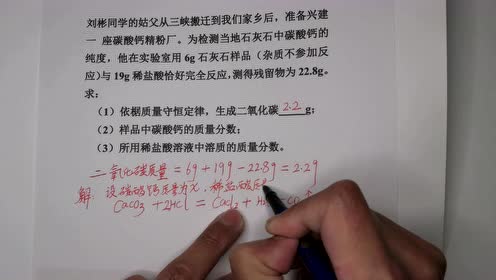 刘彬同学的姑父从三峡搬迁到我们家乡后，准备兴建
一 座碳酸钙精粉厂。为检测当地石灰石中碳酸钙的
纯度，他在实验室用 6g 石灰石样品（杂质不参加反
应）与 19g 稀盐酸恰好完全反应，测得残留物为 22.8g。
求：
（1）依据质量守恒定律，生成二氧化碳 2.2 g；
（2）样品中碳酸钙的质量分数；
（3）所用稀盐酸溶液中溶质的质量分数。
二氧化碳质量 = 6g + 19g - 22.8g = 2.2g
解：设碳酸钙质量为x，稀盐酸质
CaCO3 + 2HCl = CaCl2 + H CO ↑